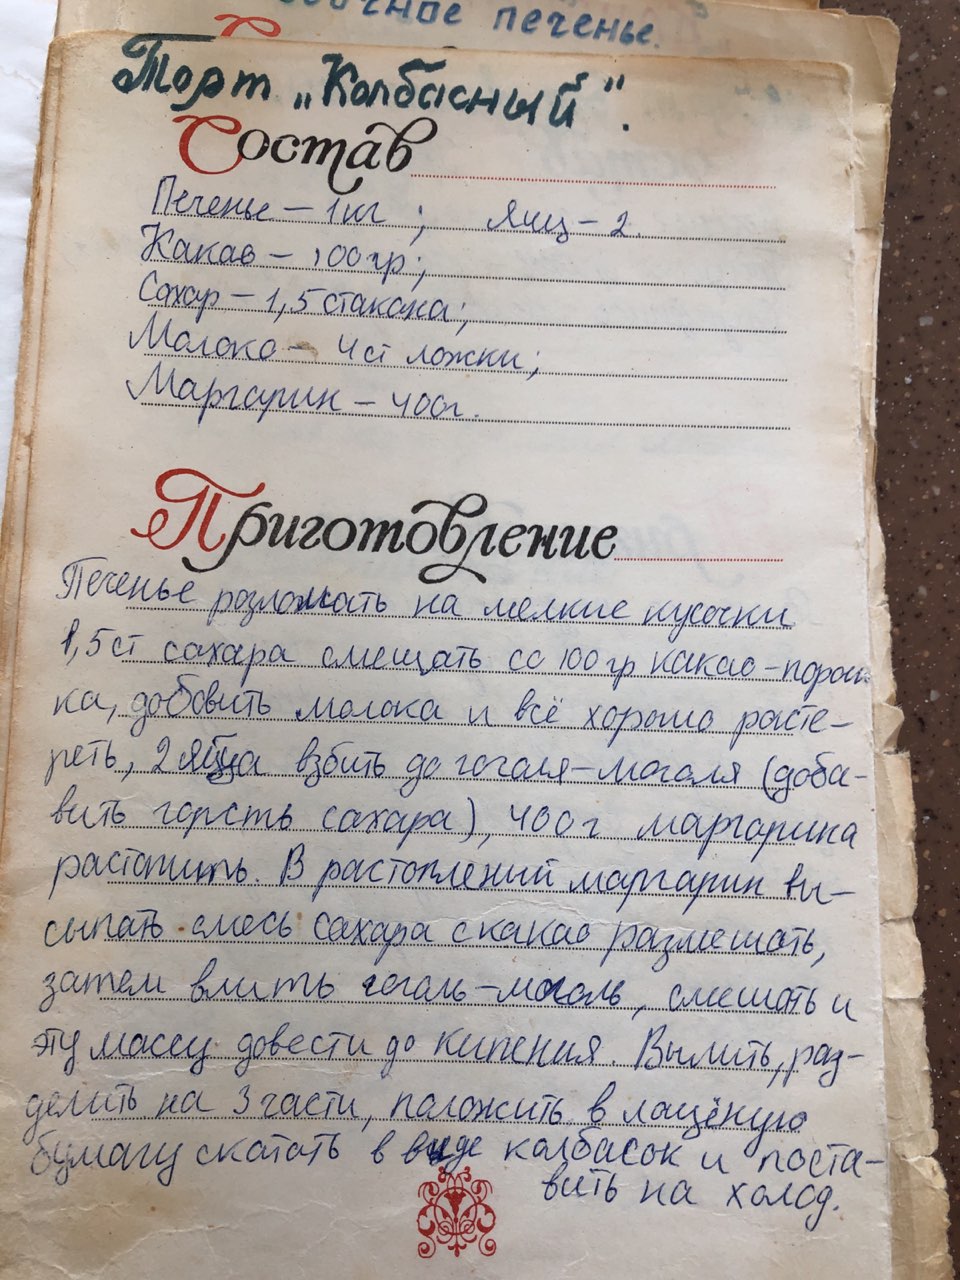 печенье.
Торт „Колбасный".
Состав
Печенье – 1 кг ; Яиц – 2.
Какао – 100 гр;
Сахар – 1,5 стакана;
Молоко – 4 ст ложки;
Маргарин – 400 г.
Приготовление
Печенье разломать на мелкие кусочки
1,5 ст сахара смешать со 100 гр какао-порош-
ка, добовить молока и всё хорошо расте-
реть, 2 яйца взбить до гоголя-моголя (доба-
вить горсть сахара), 400 г маргарина
растопить. В растоплений маргарин вы-
сыпать смесь сахара с какао размешать,
затем влить гоголь-моголь, смешать и
эту массу довести до кипения. Вылить, раз-
делить на 3 части, положить в лащёную
бумагу скатать в виде колбасок и поста-
вить на холод.